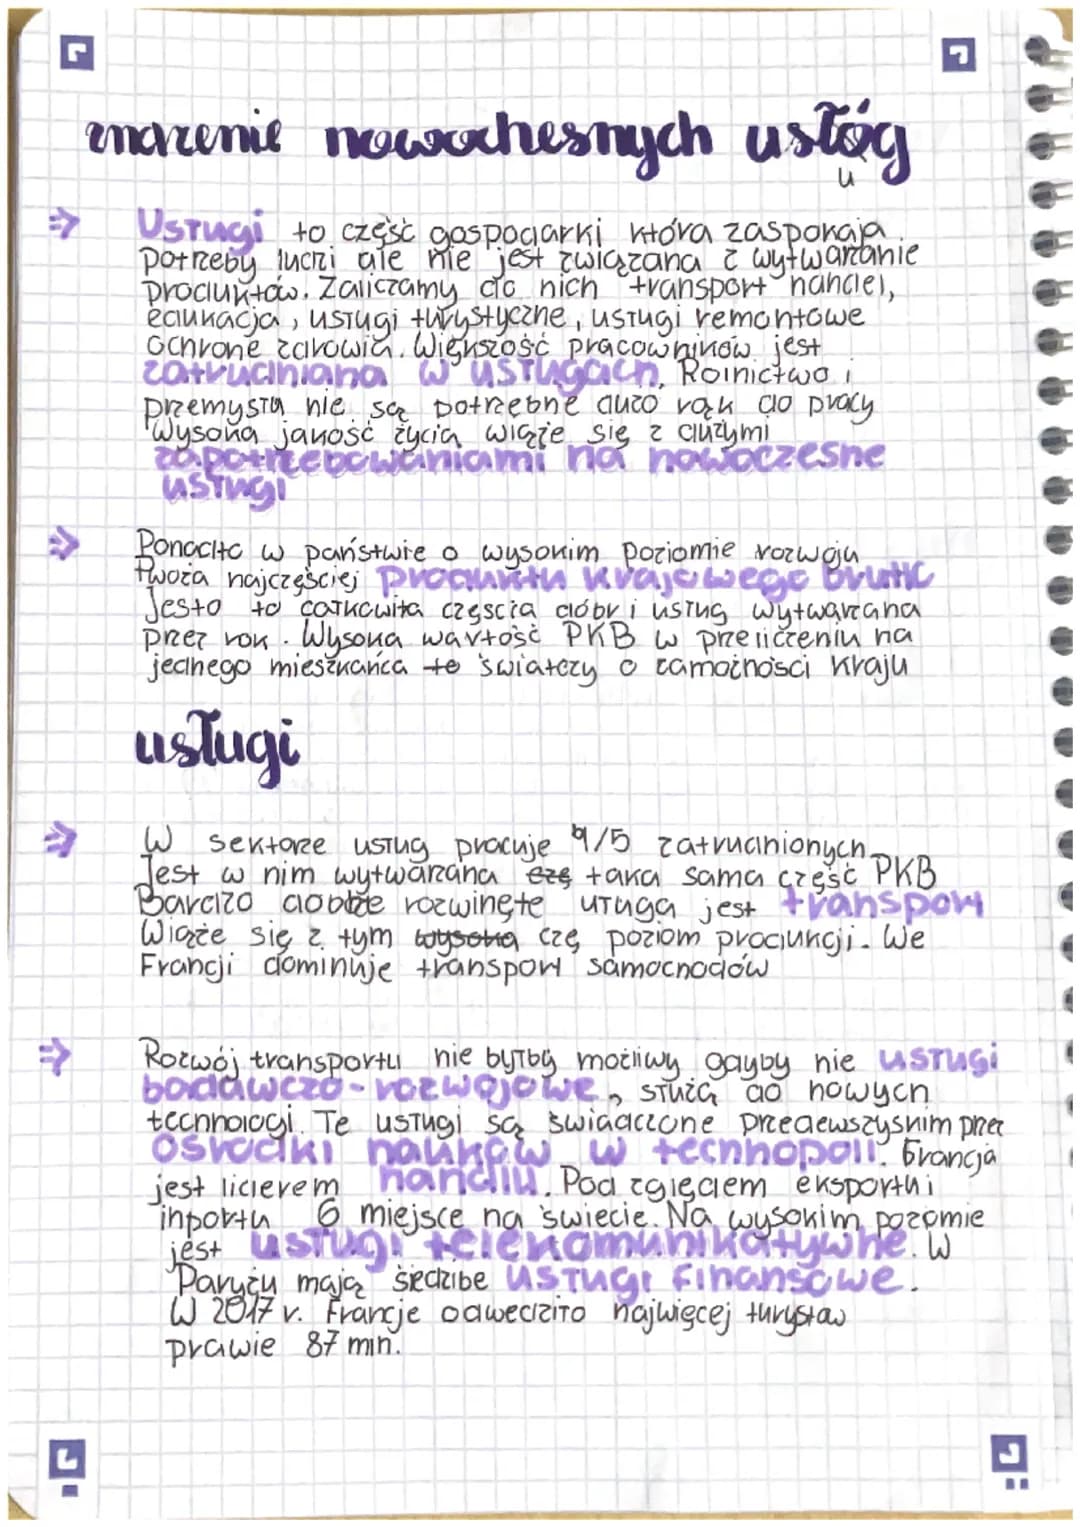 znaczenie nowoczesnych usłóg
u
⇒ Usługi to część gospodarki która zaspokaja
potrzeby ludzi ale nie jest związana z wytwarzanie
produktów. Zaliczamy do nich transport handel,
edukacja, usługi turystyczne, usługi remontowe
ochronę zdrowia. Większość pracowników jest
zatrudniana w usługach, Rolnictwo i
przemysłu nie są potrzebne dużo rąk do pracy
Wysoka jakość życia wiąże się z dużymi
zapotrzebowaniami na nowoczesne
usługi
⇒ Ponadto w państwie o wysokim poziomie rozwoju
tworzą najczęściej produktu krajowego brutto
Jesto to całkowita częscia dóbr i usług wytwarzana
przez rok. Wysoka wartość PKB w przeliczeniu na
jednego mieszkańca to światczy o zamożności kraju
usługi
⇒ W sektorze usług pracuje 4/5 zatrudnionych
Jest w nim wytwarzana czę taka sama część PKB
Bardzo dobże rozwinęte usługa jest transport
Wiąże się z tym wysoka czę poziom produkcji. We
Francji dominuje transport samochodów
⇒ Rozwój transportu nie byłby możliwy gdyby nie usługi
badawczo-rozwojowe, służą do nowych
technologi. Te usługi są świadczone przedewszyskim przez
ośrodki nauków w technopoli. Francja
jest liderem handlu. Pod zględem eksportu i
inportu 6 miejsce na świecie. Na wysokim pozomie
jest usługi telekomunikatywne. W
Paryżu mają siedzibe usługi finansowe.
W 2017 r. Francje odwedziło najwięcej turystów
prawie 87 mln.